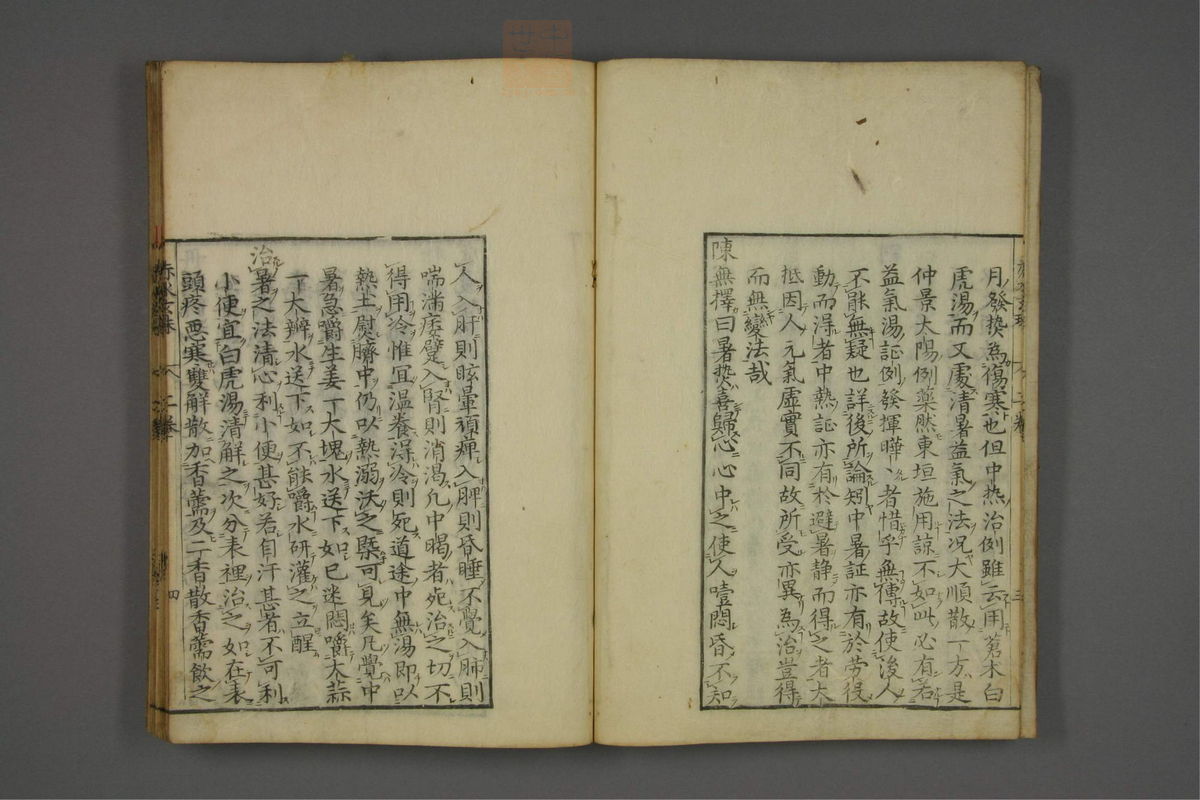 月發熱為傷寒也但中热治例雖云用蒼朮白
虎湯而又處清暑益氣之法况大順散一方是
仲景太陽例藥然東垣施用諒不如此必有若
益氣湯証例發揮曄〻者惜乎無傳故使後人
不能無疑也詳後所論知中暑証亦有於劳役
動而得者中熱証亦有於避暑静而得之者大
抵因人元氣虛實不同故所受亦異為治豈得
而無變法哉
陳無擇曰暑热喜歸心心中之使人噎悶昏不知
人入肝則眩暈頑痺入脾則昏睡不覺入肺則
喘滿痿躄入腎則消渴凡中暍者死治之切不
得用冷惟宜温養得冷則死道途中無湯即以
熱土熨臍中仍以熱溺沃之槩可見矣凡覺中
暑急嚼生姜一大塊水送下如已迷悶嚼大蒜
一大瓣水送下如不能嚼水研灌之立醒
治暑之法清心利小便甚好若自汗甚者不可利
小便宜白虎湯清解之次分表裡治之如在表
頭疼惡寒雙解散加香薷及二香散香薷飲之
二卷
四